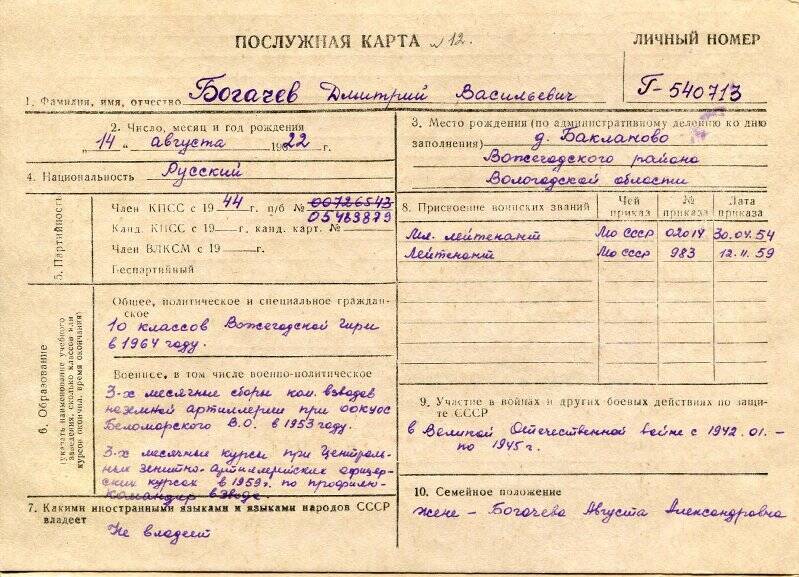 ПОСЛУЖНАЯ КАРТА № 12.
ЛИЧНЫЙ НОМЕР
Г-540713
1. Фамилия, имя, отчество Богачев Дмитрий Васильевич
2. Число, месяц и год рождения
„14" августа 1922 г.
4. Национальность Русский
3. Место рождения (по административному делению ко дню
заполнения) д. Бакланово
Вожегодского района
Вологодской области
5. Партийность
Член КПСС с 1944 г. п/б № 00726543
05483879
Канд. КПСС с 19 г. канд. карт. №
Член ВЛКСМ с 19 г.
Беспартийный
8. Присвоение воинских званий
Чей приказ
№ приказа
Дата приказа
Мл. лейтенант МО СССР 02014 30.04.54
Лейтенант МО СССР 983 12.11.59
6. Образование
(указать наименование учебного
заведения, сколько классов или
курсов окончил, время окончания)
Общее, политическое и специальное граждан-
ское
10 классов Вожегодской
в 1964 году.
Военное, в том числе военно-политическое
3-х месячные сборы ком. взводов
наземной артиллерии при
Беломорского В.О. в 1953 году.
3-х месячные курсы при Централь-
ных зенитно-артиллерийских офицер-
ских курсах в 1959 г. по профилю-
командир взвода.
9. Участие в войнах и других боевых действиях по защи-
те СССР
в Великой Отечественной войне с 1942.01.-
по 1945 г.
7. Какими иностранными языками и языками народов СССР
владеет
Не владеет
10. Семейное положение
жена - Богачева Августа Александровна